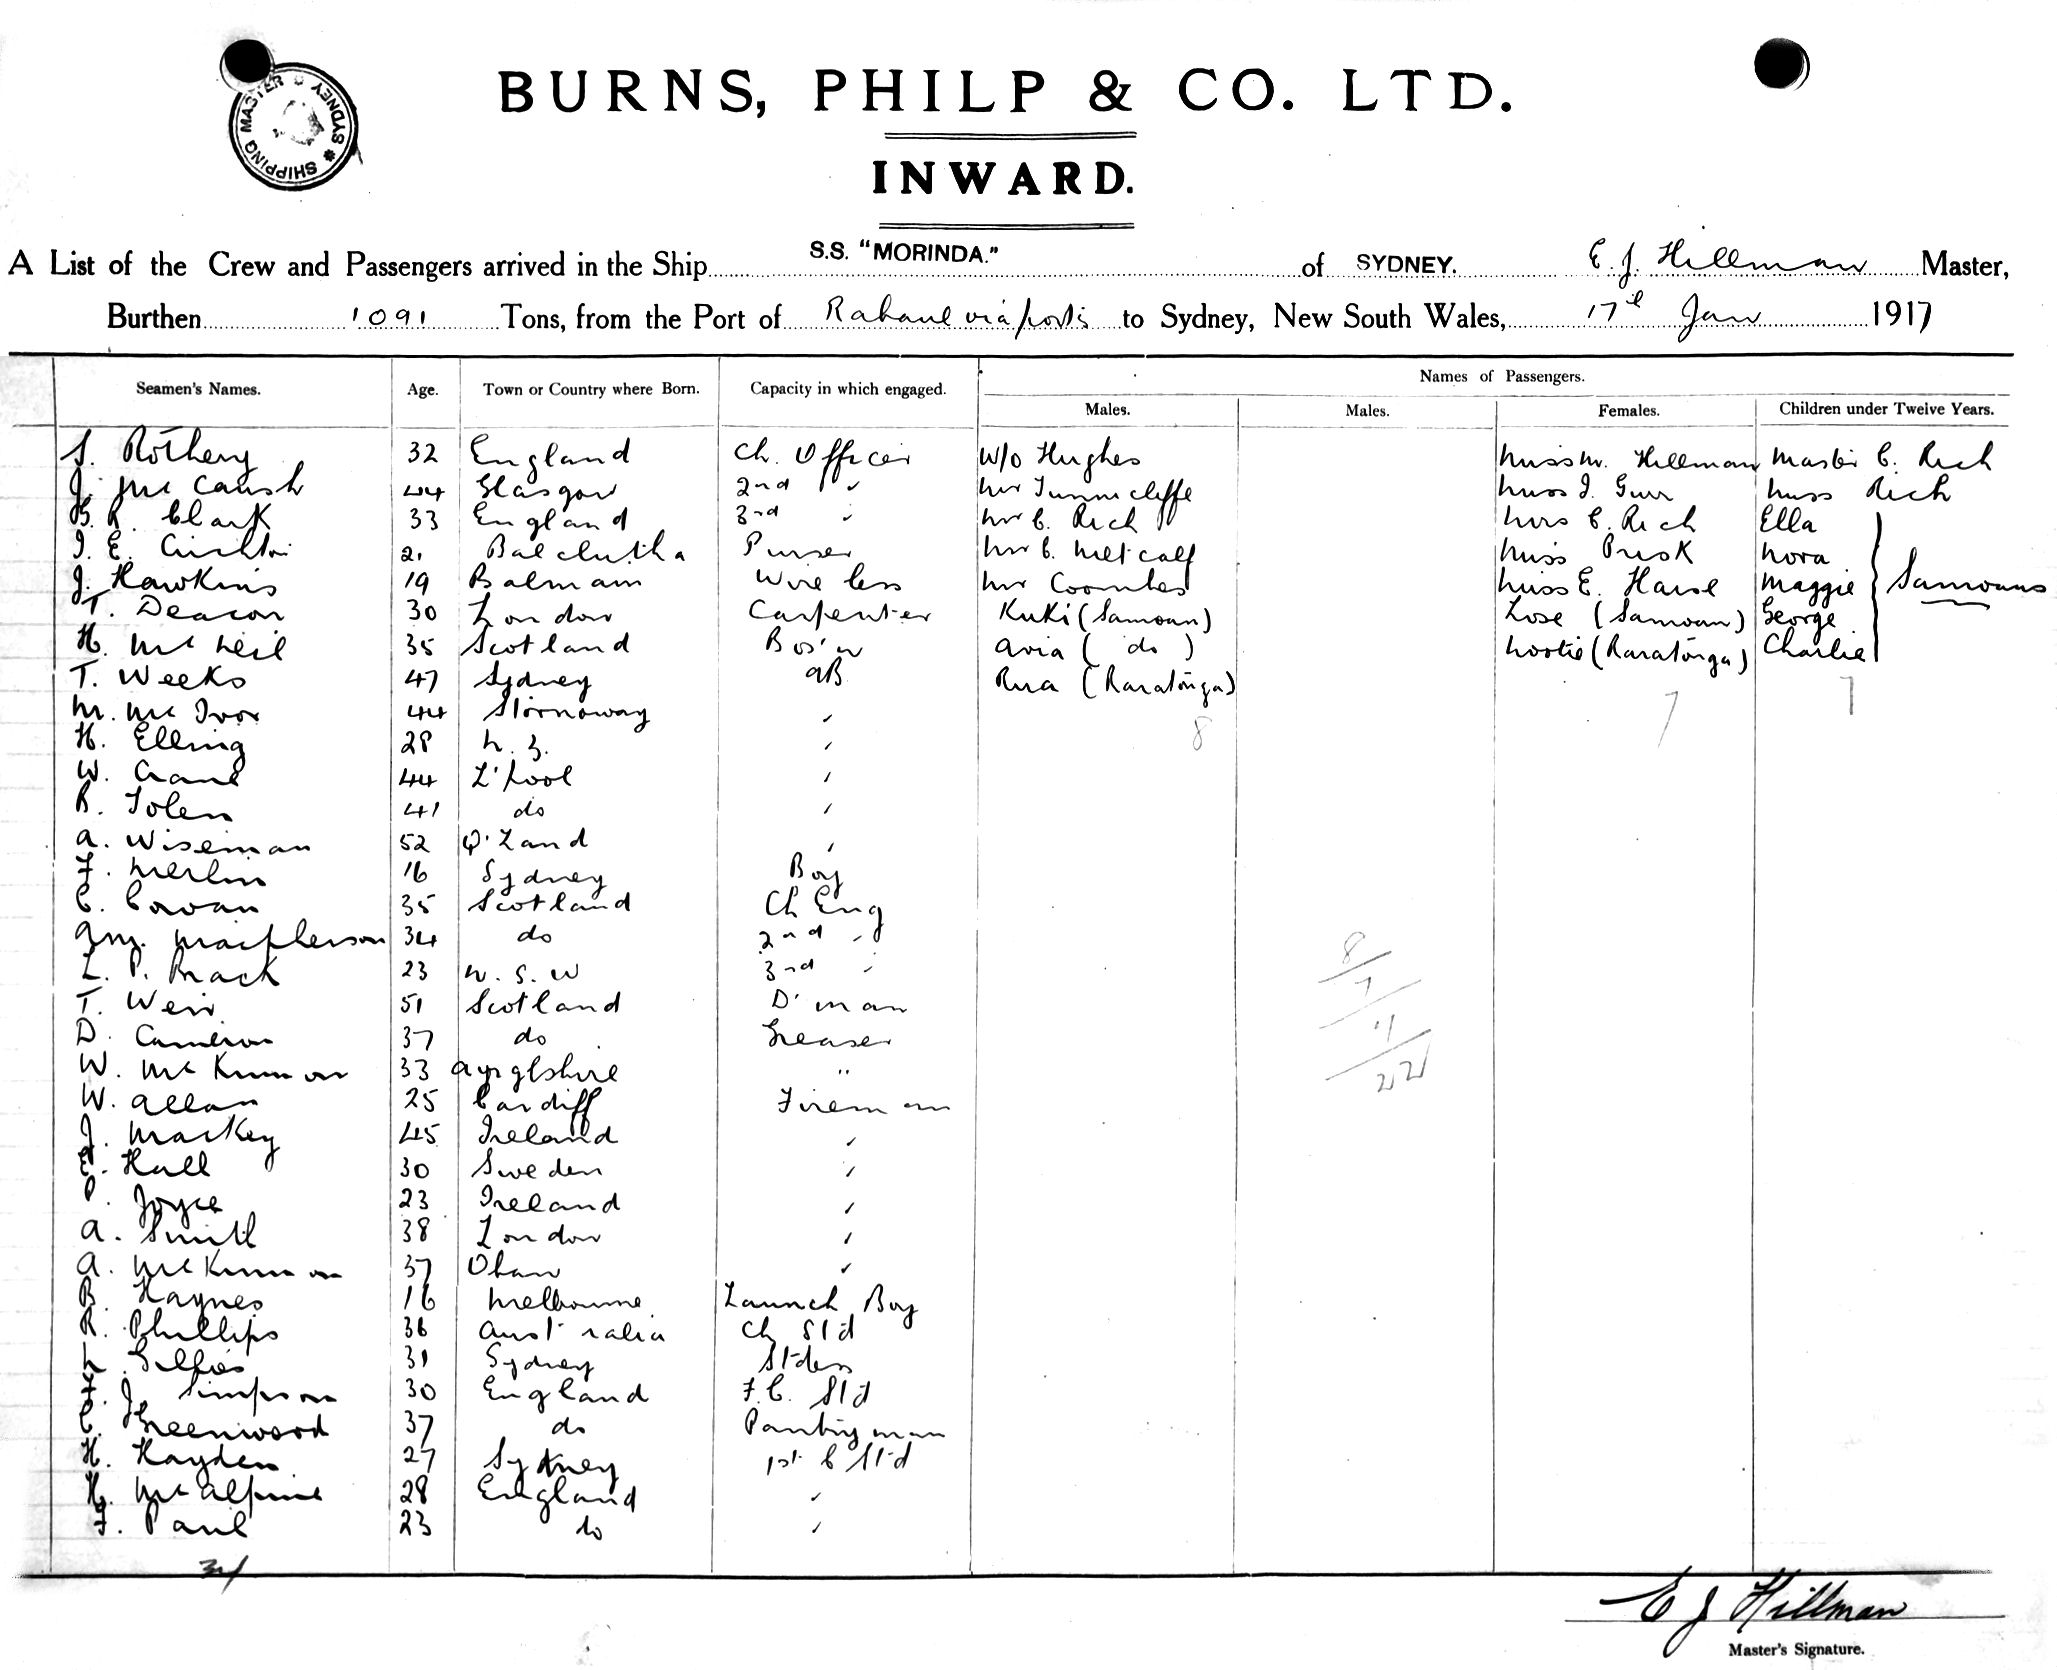 SHIPPING MASTER * SYDNEY *
BURNS, PHILP & CO. LTD.
INWARD.
A List of the Crew and Passengers arrived in the Ship S.S. "MORINDA." of SYDNEY. E. J. Hillman Master,
Burthen 1091 Tons, from the Port of Rabaul via ports to Sydney, New South Wales, 17th Jan 1917
Names of Passengers.
Seamen's Names. Age. Town or Country where Born. Capacity in which engaged. Males. Males. Females. Children under Twelve Years.
S. Rothery 32 England Ch. Officer W/O Hughes Miss M. Hillman Master C. Rich
J. McCaush 44 Glasgow 2nd " Mr Tunnicliffe Miss I. Gurr Miss Rich
B. R. Clark 33 England 3rd " Mr C. Rich Mrs C. Rich Ella
J. E. 21 Balclutha Purser Mr C. Metcalf Miss Prisk Nora
J. Hawkins 19 Balmain Wireless Mr Coombes Miss E. Maggie Samoans
T. Deacon 30 London Carpenter Kuki (Samoan) Lose (Samoan) George
H. McNeil 35 Scotland Bos'n Avia ( do ) Nootie (Raratonga) Charlie
T. Weeks 47 Sydney AB Rua (Raratonga)
M. McIvor 44 Stornoway " 8 7 7
H. Elling 28 N. Z. "
W. Crane 44 L'pool "
R. Tolen 41 do "
A. Wiseman 52 Q'Land "
F. Merlin 16 Sydney Boy
C. Cowan 35 Scotland Ch Eng
A.M. Macpherson 34 do 2nd " 8
L. P. Brack 23 N. S. W 3rd " 7
T. Weir 51 Scotland D'man
D. Cameron 37 do Greaser
W. McKinnon 33 Argylshire " 22
W. Allan 25 Cardiff Fireman
J. Mackey 45 Ireland "
E. Hall 30 Sweden "
P. Joyce 23 Ireland "
A. Smith 38 London "
A. McKinnon 37 Oban "
B. Haynes 16 Melbourne Launch Boy
R. Phillips 36 Australia Ch Std
L. Gillies 31 Sydney Stdess
F. J. Simpson 30 England F.C. Std
C. Greenwood 37 do Pantryman
H. Hayden 27 Sydney 1st C Std
H. McAlpine 28 England "
F. Paul 23 do "
34
E J Hillman
Master's Signature.